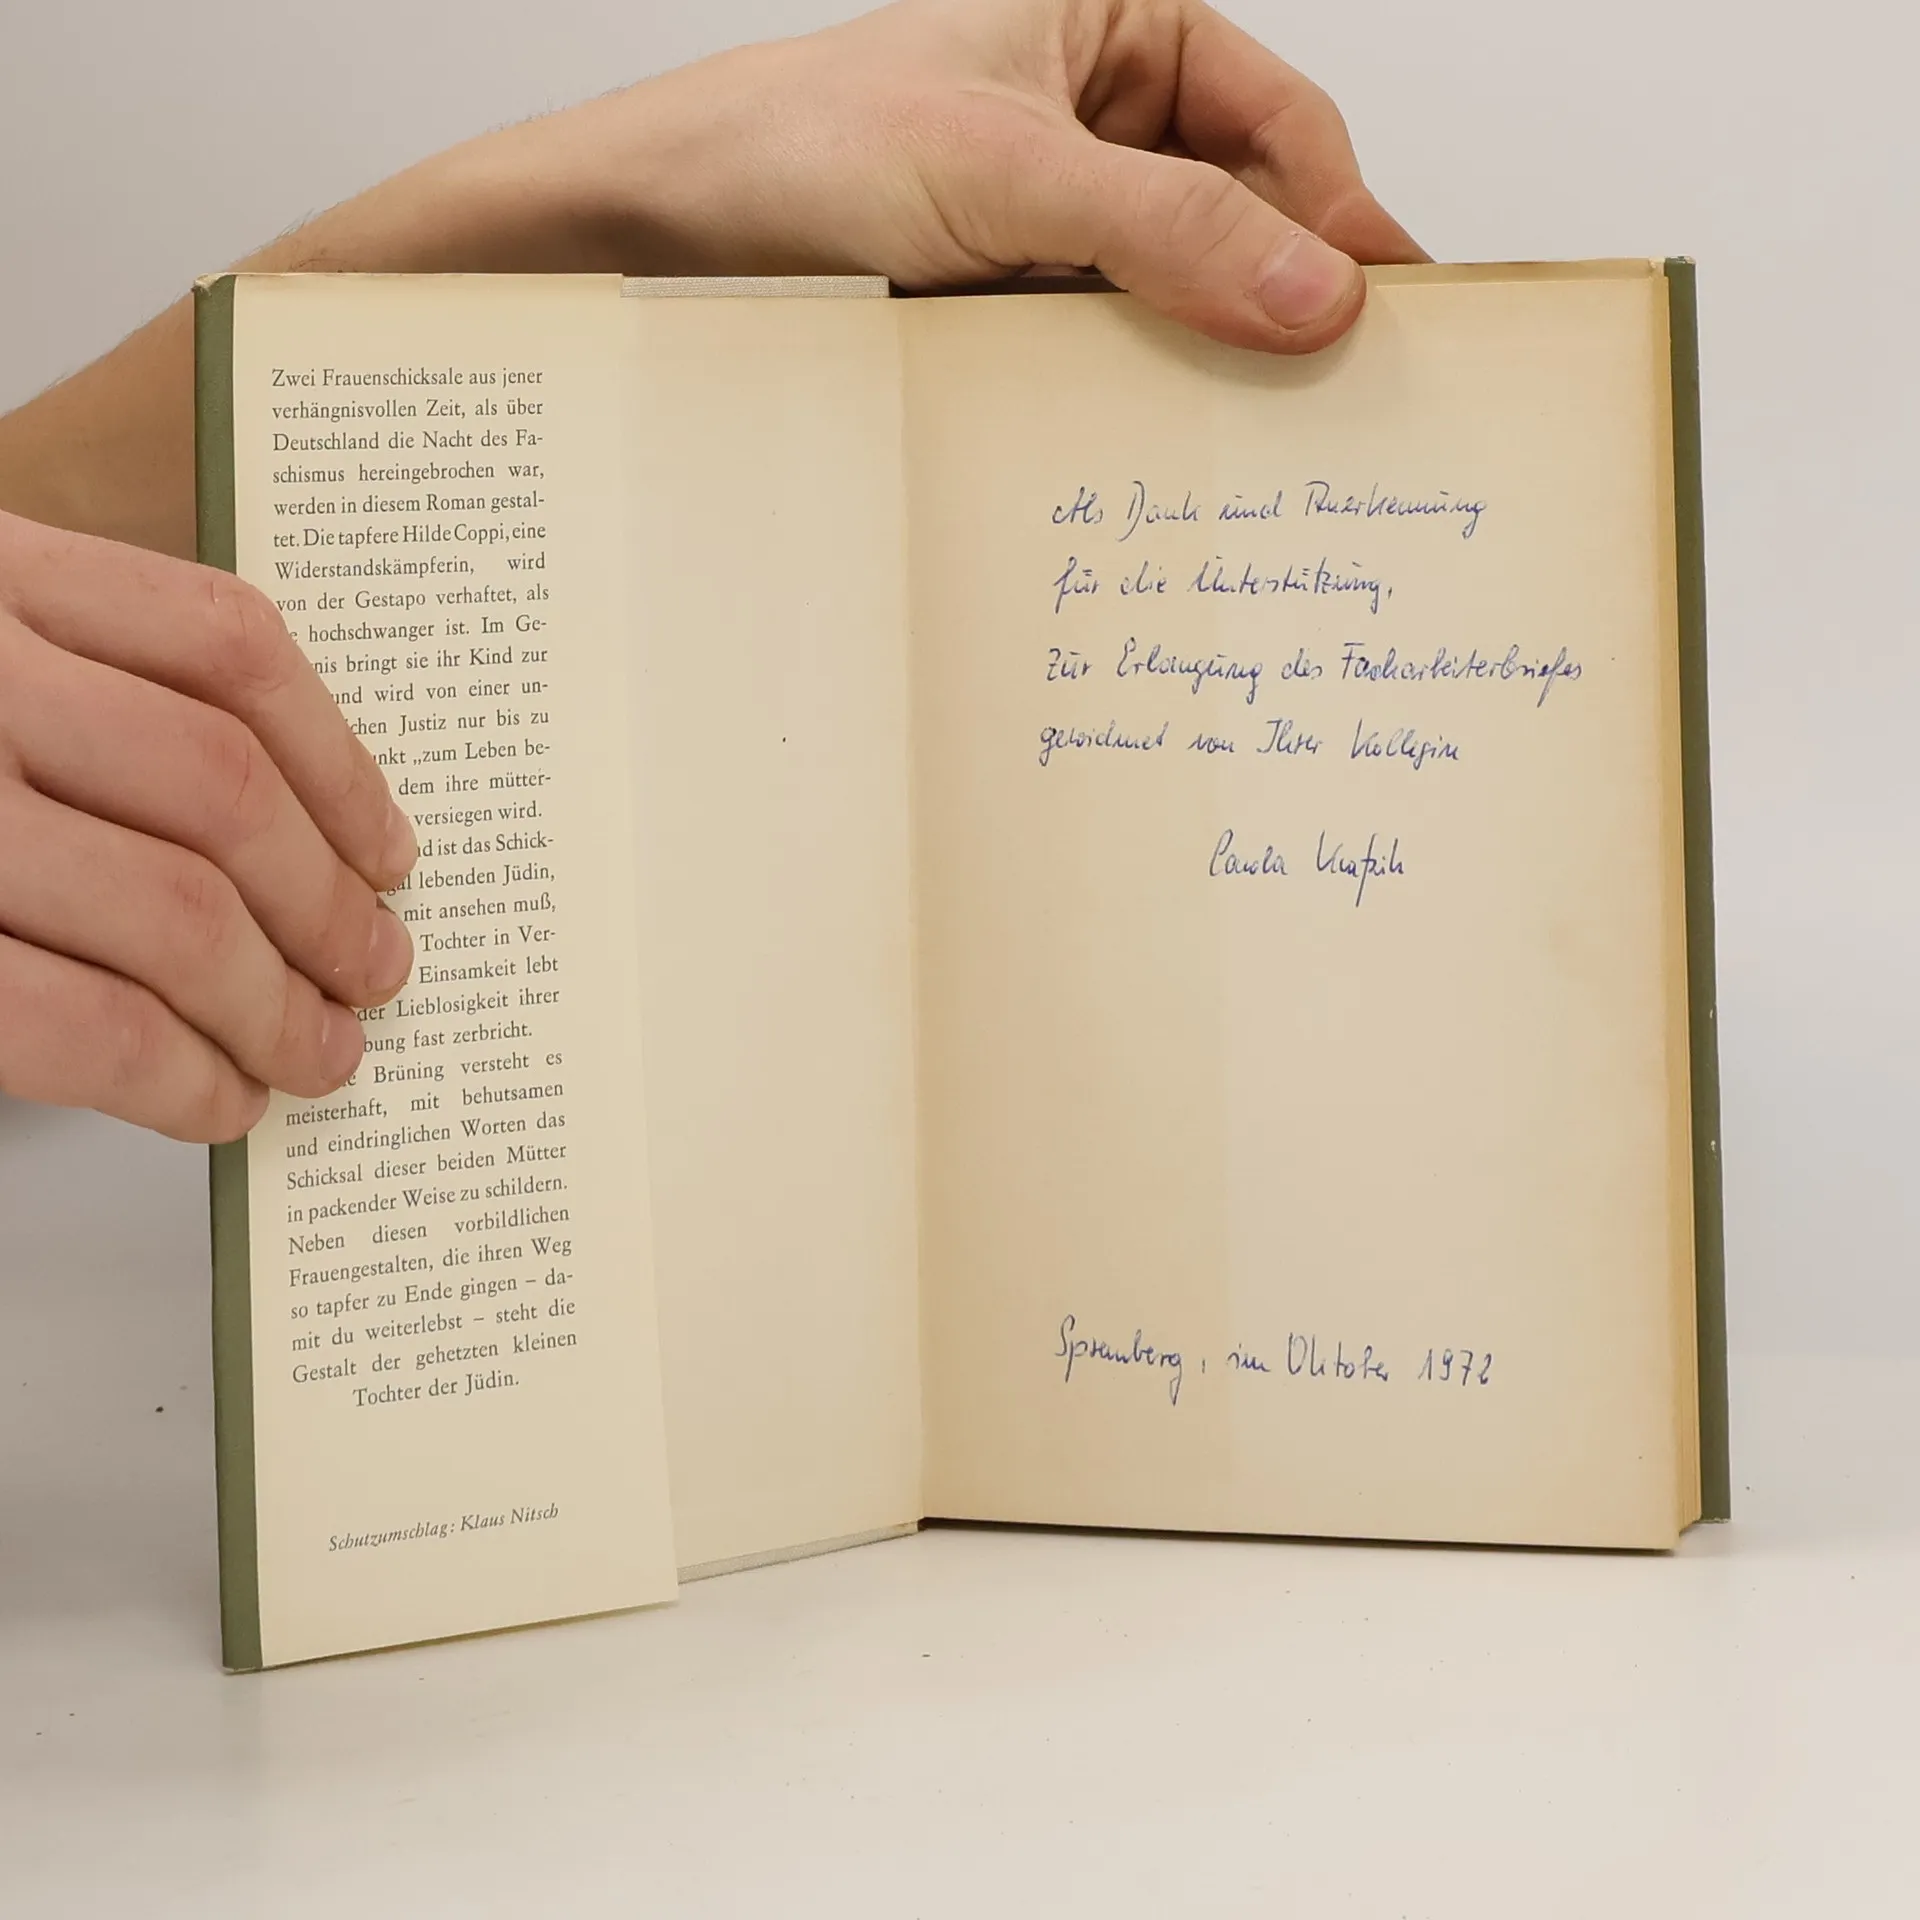 Zwei Frauenschicksale aus jener
verhängnisvollen Zeit, als über
Deutschland die Nacht des Fa-
schismus hereingebrochen war,
werden in diesem Roman gestal-
tet. Die tapfere Hilde Coppi, eine
Widerstandskämpferin, wird
von der Gestapo verhaftet, als
hochschwanger ist. Im Ge-
nis bringt sie ihr Kind zur
und wird von einer un-
chen Justiz nur bis zu
nkt „zum Leben be-
dem ihre mütter-
versiegen wird.
d ist das Schick-
gal lebenden Jüdin,
mit ansehen muß,
Tochter in Ver-
Einsamkeit lebt
der Lieblosigkeit ihrer
bung fast zerbricht.
Brüning versteht es
meisterhaft, mit behutsamen
und eindringlichen Worten das
Schicksal dieser beiden Mütter
in packender Weise zu schildern.
Neben diesen vorbildlichen
Frauengestalten, die ihren Weg
so tapfer zu Ende gingen – da-
mit du weiterlebst – steht die
Gestalt der gehetzten kleinen
Tochter der Jüdin.
Schutzumschlag: Klaus Nitsch
Als Dank und Anerkennung
für die Unterstützung,
zur Erlangung des Facharbeiterbriefes
gewidmet von Ihrer Kollegin
Carola
Spremberg, im Oktober 1972